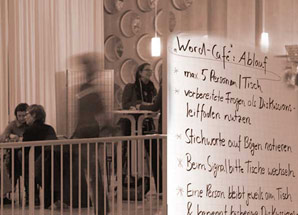 "Word-Café": Ablauf
* max. 5 Personen / Tisch
* vorbereitete Fragen als Diskussions-
leitfaden nutzen
* Stichworte auf Bögen notieren
* Beim Signal bitte Tische wechseln
* Eine Person bleibt jeweils am Tisch
&